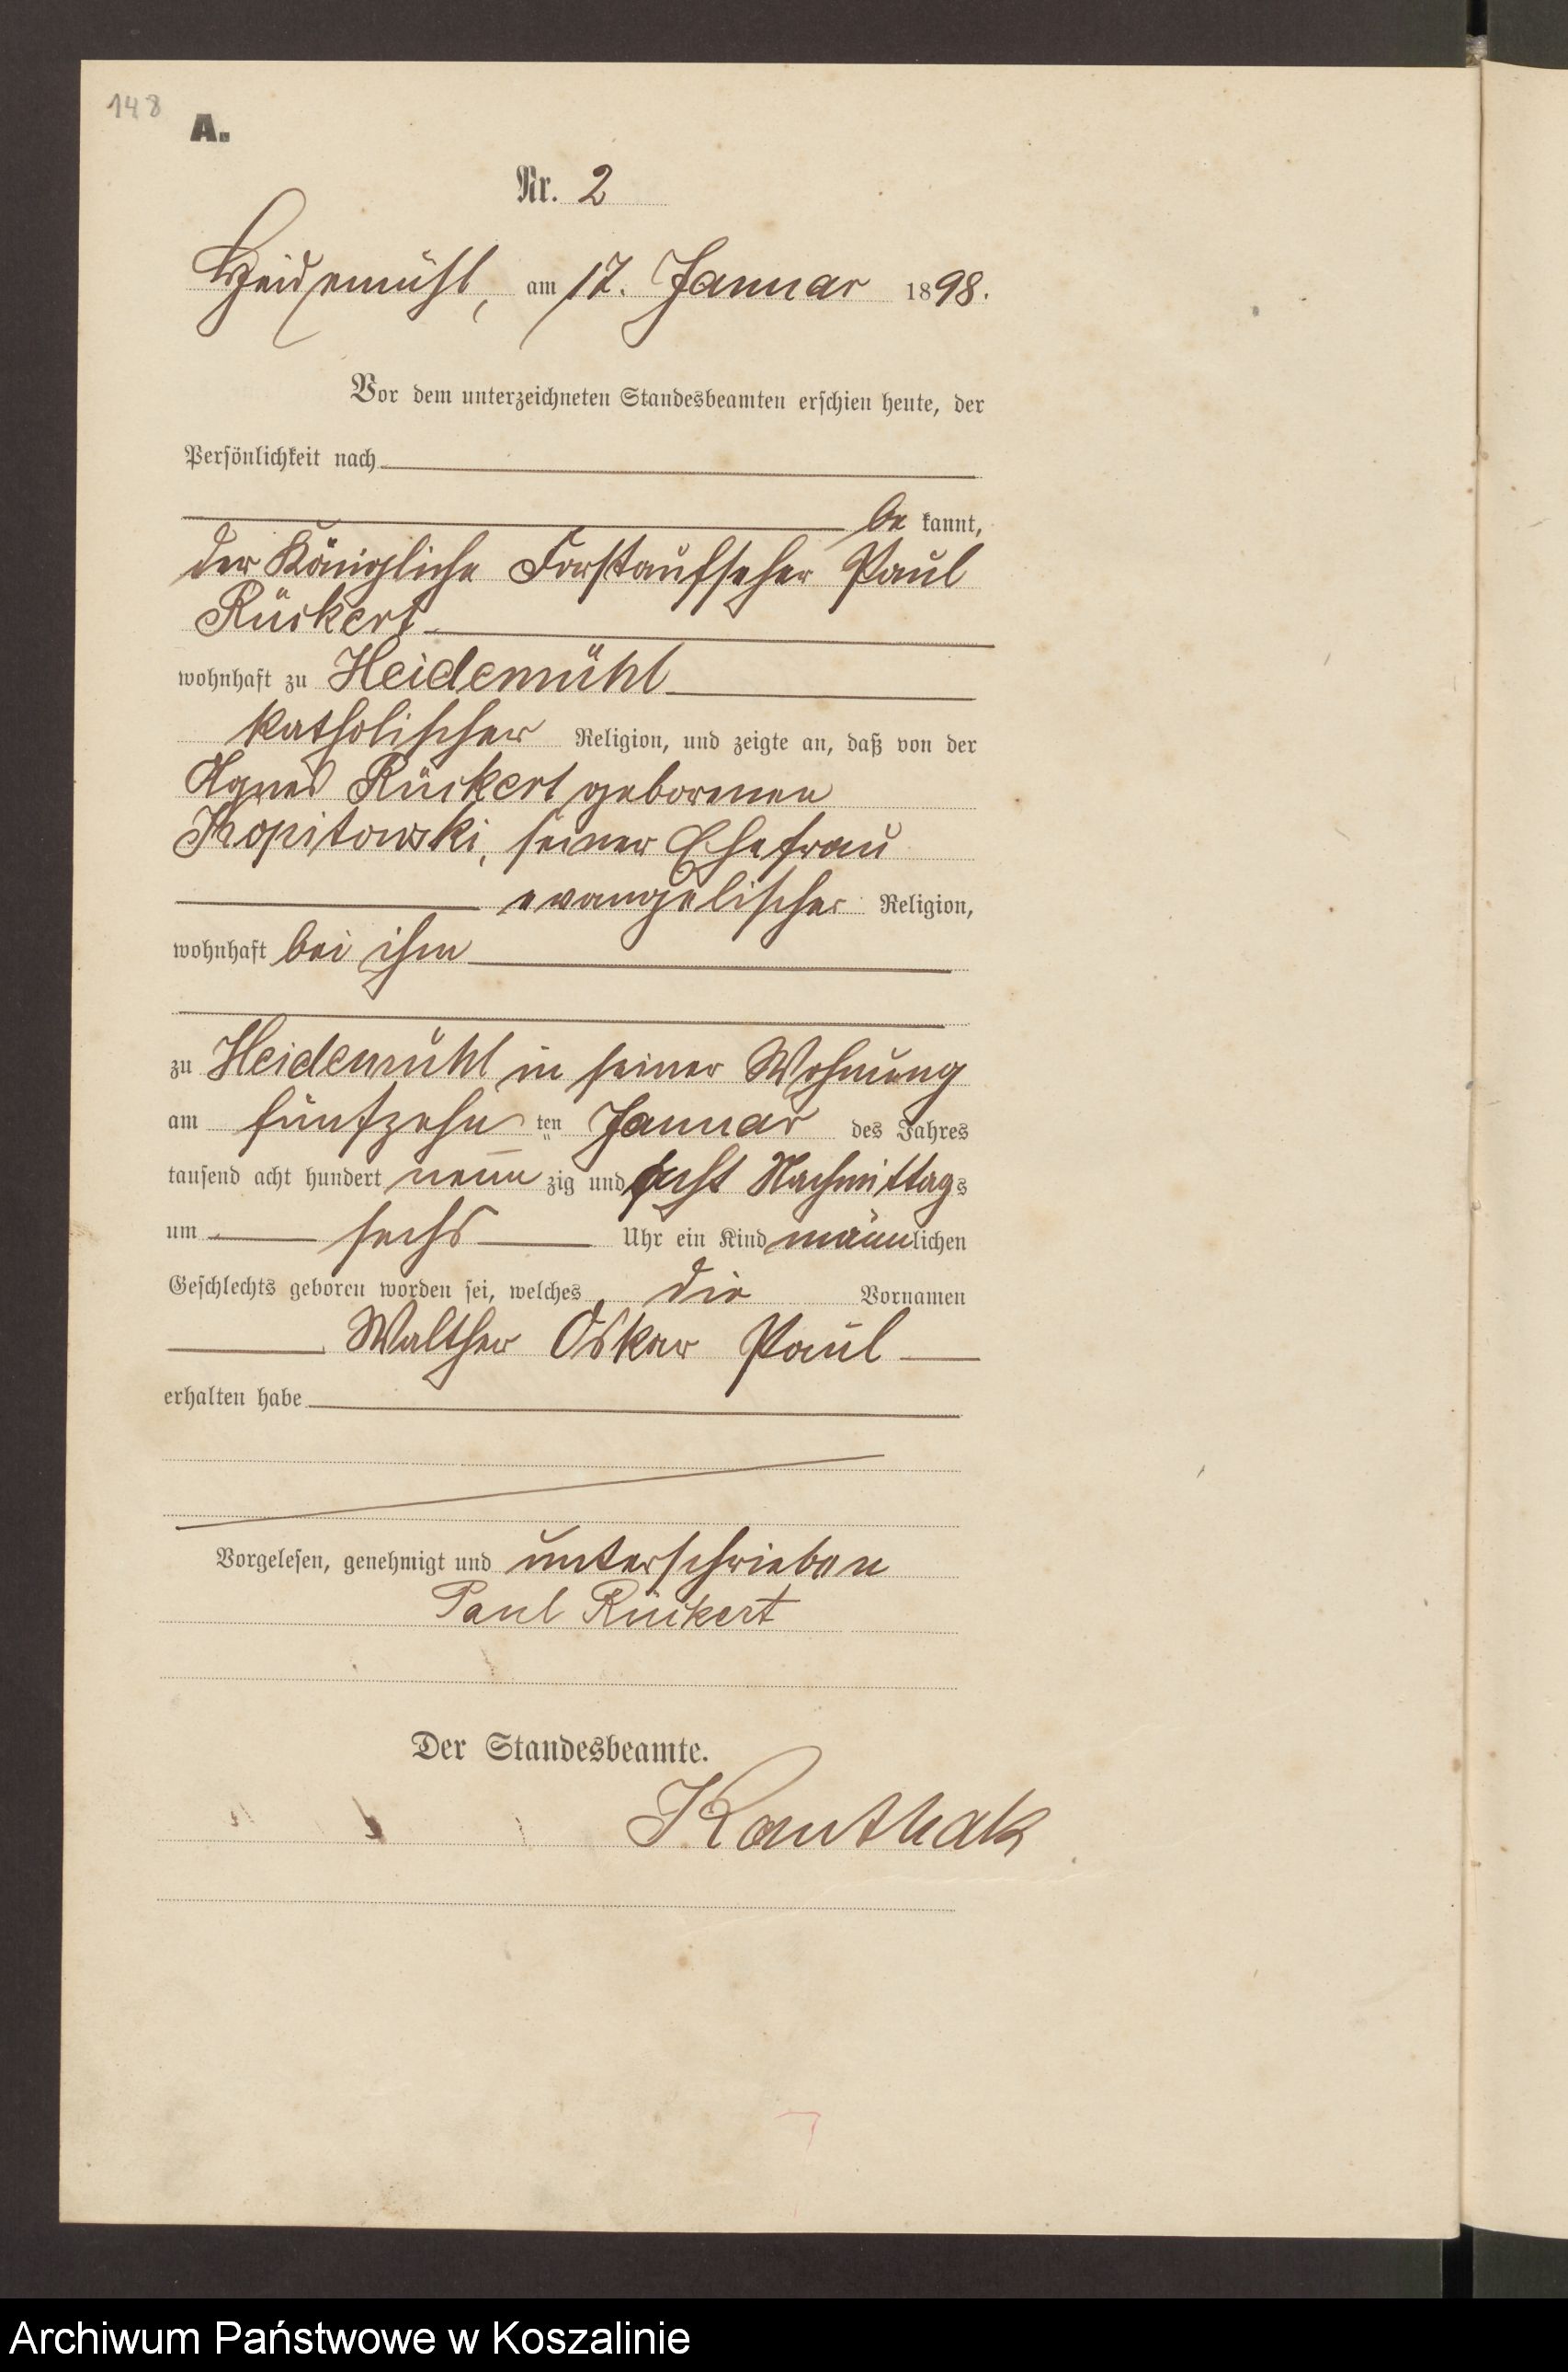 148
A.
Nr. 2
Heidemühl, am 17. Januar 1898.
Vor dem unterzeichneten Standesbeamten erschien heute, der
Persönlichkeit nach
be kannt,
der Königliche Forstaufseher Paul
Rückert
wohnhaft zu Heidemühl
katholischer Religion, und zeigte an, daß von der
Agnes Rückert geborenen
Kropitowski, seiner Ehefrau
evangelischer Religion,
wohnhaft bei ihm
zu Heidemühl in seiner Wohnung
am fünfzehn ten Januar des Jahres
tausend acht hundert neun zig und acht Nachmittags
um sechs Uhr ein Kind männlichen
Geschlechts geboren worden sei, welches die Vornamen
Walther Oskar Paul
erhalten habe
Vorgelesen, genehmigt und unterschrieben
Paul Rückert
Der Standesbeamte.
Kauthak
Archiwum Państwowe w Koszalinie